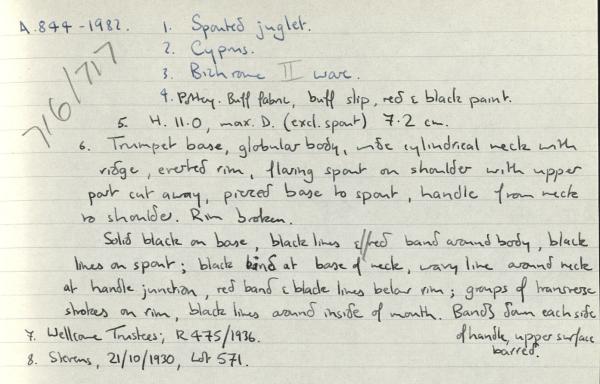 A.844-1982. 1. Spouted juglet.
2. Cyprus.
3. Bichrome II ware.
716/717
4. Pottery. Buff fabric, buff slip, red & black paint.
5. H. 11.0, max. D. (excl. spout) 7.2 cm.
6. Trumpet base, globular body, wide cylindrical neck with
ridge, everted rim, flaring spout on shoulder with upper
part cut away, pierced base to spout, handle from neck
to shoulder. Rim broken.
Solid black on base, black lines & red band around body, black
lines on spout; black band at base of neck, wavy line around neck
at handle junction, red band & black lines below rim; groups of transverse
strokes on rim, black lines around inside of mouth. Bands down each side
of handle, upper surface
barred.
7. Wellcome Trustees; R 475/1936.
8. Stevens, 21/10/1930, Lot 571.